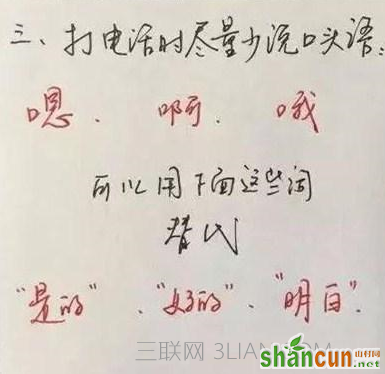 三、打电话时尽量少说口头语：
嗯、啊、哦
可以用下面这些词
替代
"是的"、"好的"、"明白".
三联网 3LIAN.COM
shancun
山村网
.net